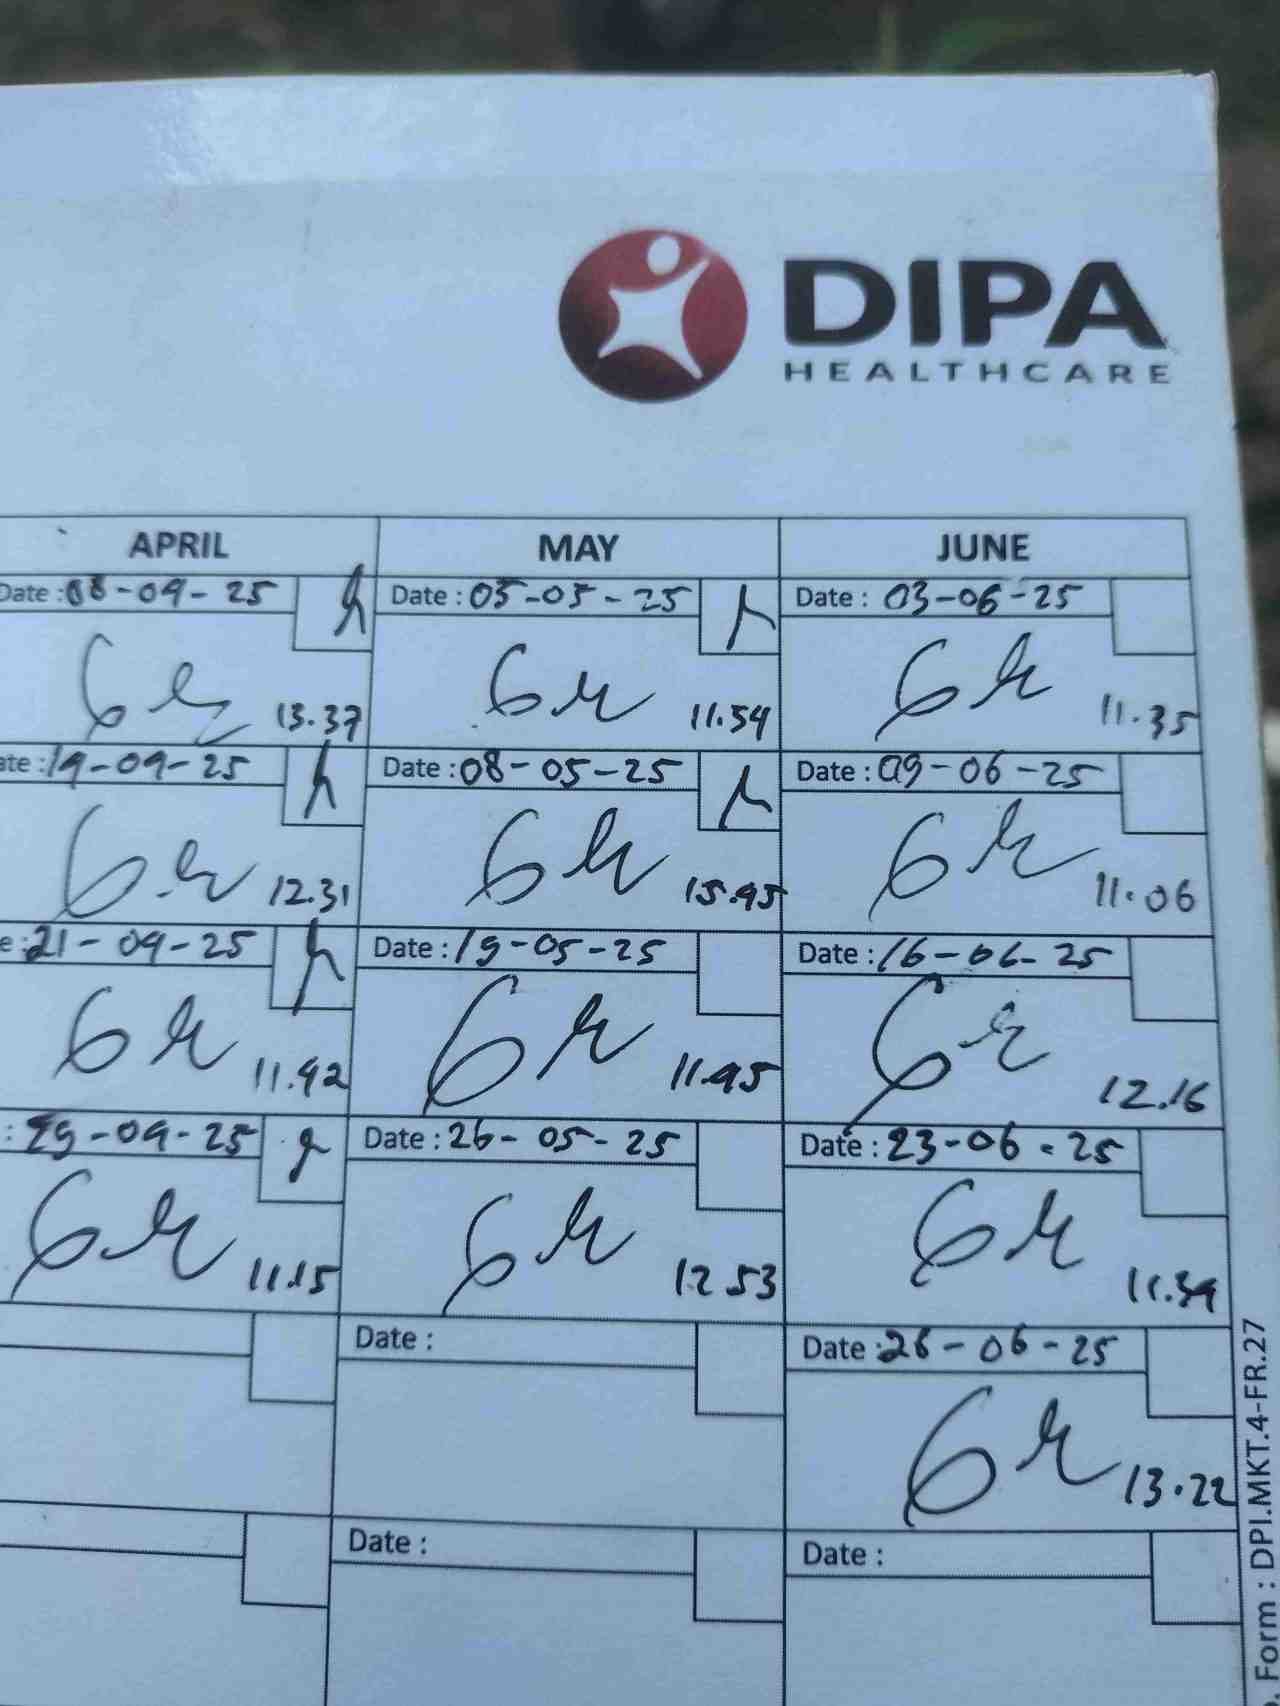 DIPA
HEALTHCARE
APRIL MAY JUNE
Date : 08-04-25 Date : 05-05-25 Date : 03-06-25
13.37 11.54 11.35
ate : 14-04-25 Date : 08-05-25 Date : 09-06-25
12.31 15.45 11.06
e : 21-04-25 Date : 19-05-25 Date : 16-06-25
11.42 11.45 12.16
: 29-04-25 Date : 26-05-25 Date : 23-06-25
11.15 12.53 11.34
Date : Date : 26-06-25
13.22
Date : Date :
Form : DPI.MKT.4-FR.27